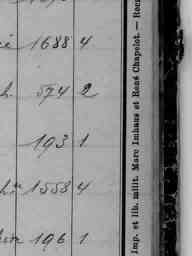 1688 4
h. 574 2
193 1
1558 4
196 1
Imp. et lib. milit. Marc Imhaus et René Chapelot. — Rec